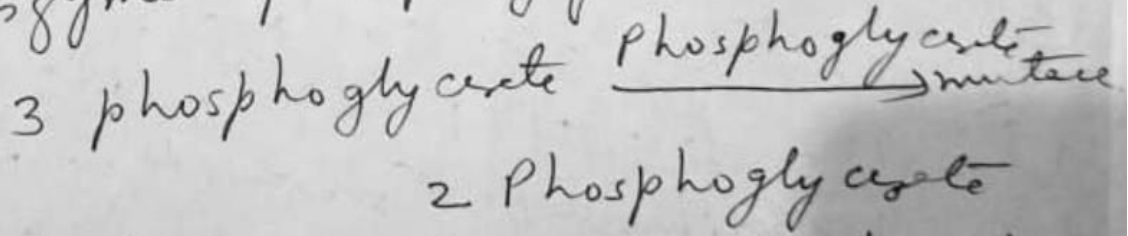 3 phosphoglycerate Phosphoglycerate mutase
2 Phosphoglycerate